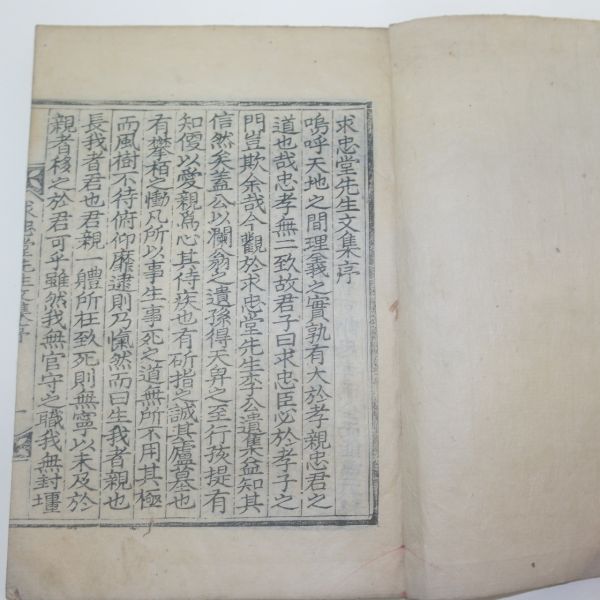 求忠堂先生文集序
嗚呼天地之間理義之實孰有大於孝親忠君之
道也哉忠孝無二致故君子曰求忠臣必於孝子之
門豈欺余哉今觀於求忠堂先生李公遺集益知其
信然矣蓋公以瀾翁之遺孫得天畀之至行孩提有
知便以愛親爲心其侍疾也有斫指之誠其廬墓也
有攀栢之慟凡所以事生事死之道無所不用其極
而風樹不待俯仰靡逮則乃慨然而曰生我者親也
長我者君也君親一體所在致死則無寧以未及於
親者移之於君可乎雖然我無官守之職我無封壃
求忠堂先生文集序 一